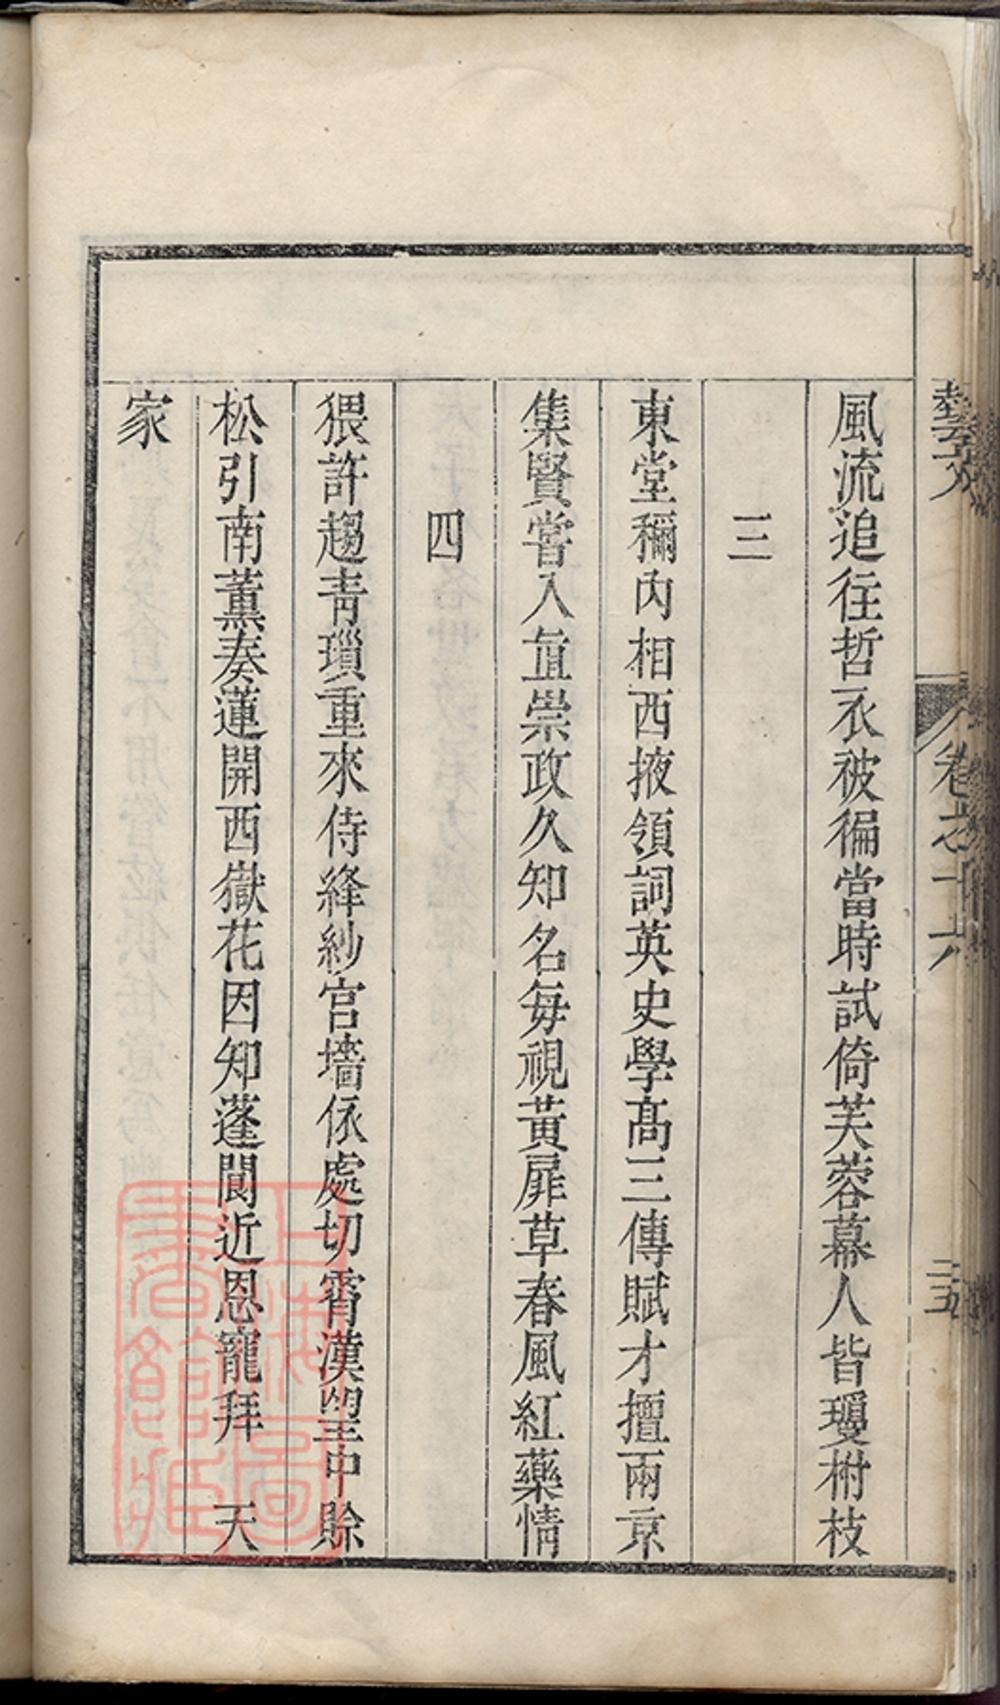 風流追往哲衣被徧當時試倚芙蓉幕人皆瓊樹枝
三
東堂稱內相西掖領詞英史學高三傳賦才擅兩京
集賢嘗入直崇政久知名每視黃扉草春風紅藥情
四
猥許趨青瑣重來侍絳紗宮墻依處切霄漢望中賒
松引南薰奏蓮開西嶽花因知蓬閬近恩寵拜　天
家
卷之十六
三五
上海圖書館藏